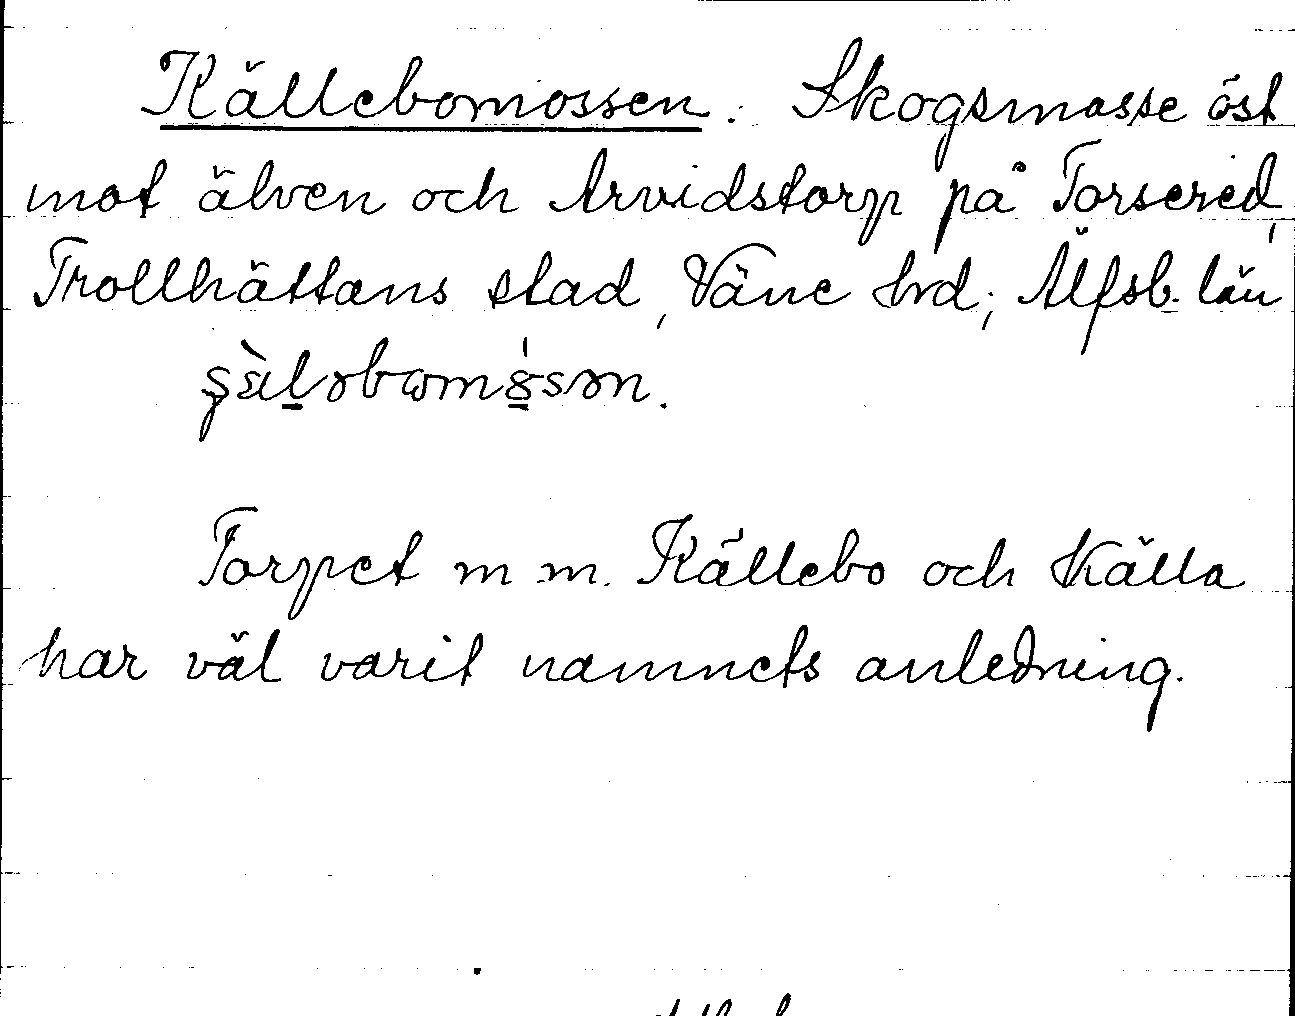 Källebomossen. Skogsmosse öst
mot älven och Arvidstorp på Torsered,
Trollhättans stad, Väne hrd; Älfsb. län
Torpet m m. Källebo och Källa
har väl varit namnets anledning.